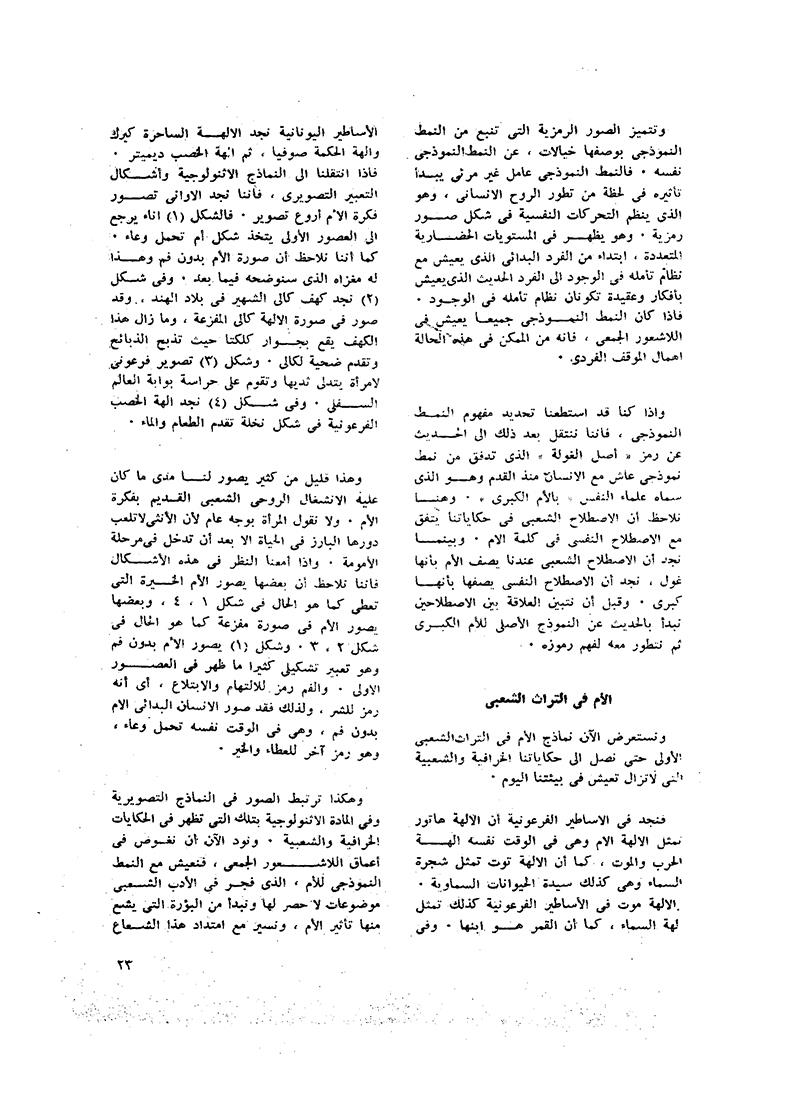 وتتميز الصور الرمزية التى تنبع من النمط
النموذجى بوصفها خيالات ، عن النمط النموذجى
نفسه ٠ فالنمط النموذجى عامل غير مرئى يبدأ
تأثيره فى لحظة من تطور الروح الانسانى ، وهو
الذى ينظم التحركات النفسية فى شكل صور
رمزية ٠ وهو يظهر فى المستويات الحضارية
المتعددة ، ابتداء من الفرد البدائى الذى يعيش مع
نظام تأمله فى الوجود الى الفرد الحديث الذى يعيش
بأفكار وعقيدة تكونان نظام تأمله فى الوجود ٠
فاذا كان النمط النموذجى جميعا يعيش فى
اللاشعور الجمعى ، فانه من الممكن فى هذه الحالة
اهمال الموقف الفردى ٠
واذا كنا قد استطعنا تحديد مفهوم النمط
النموذجى ، فاننا ننتقل بعد ذلك الى الحديث
عن رمز « أصل الغولة » الذى تدفق من نمط
نموذجى عاش مع الانسان منذ القدم وهو الذى
سماه علماء النفس « بالأم الكبرى » ٠ وهنا
نلاحظ أن الاصطلاح الشعبى فى حكاياتنا يتفق
مع الاصطلاح النفسى فى كلمة الام ٠ وبينما
نجد أن الاصطلاح الشعبى عندنا يصف الأم بأنها
غول ، نجد أن الاصطلاح النفسى يصفها بأنها
كبرى ٠ وقبل أن نتبين العلاقة بين الاصطلاحين
نبدأ بالحديث عن النموذج الأصلى للأم الكبرى
ثم نتطور معه لفهم رموزه ٠
الأم فى التراث الشعبى
ونستعرض الآن نماذج الأم فى التراث الشعبى
الأولى حتى نصل الى حكاياتنا الخرافية والشعبية
التى لاتزال تعيش فى بيئتنا اليوم ٠
فنجد فى الاساطير الفرعونية أن الالهة هاتور
تمثل الالهة الام وهى فى الوقت نفسه الهة
الحرب والموت ، كما أن الالهة توت تمثل شجرة
السماء وهى كذلك سيدة الحيوانات السماوية ٠
الالهة موت فى الأساطير الفرعونية كذلك تمثل
لهة السماء ، كما أن القمر هو ابنها ٠ وفى
الأساطير اليونانية نجد الالهة الساحرة كيرك
والهة الحكمة صوفيا ، ثم الهة الخصب ديميتر ٠
فاذا انتقلنا الى النماذج الاثنولوجية وأشكال
التعبير التصويرى ، فأننا نجد الاوانى تصور
فكرة الأم أروع تصوير ٠ فالشكل (١) اناء يرجع
الى العصور الأولى يتخذ شكل أم تحمل وعاء ٠
كما أننا نلاحظ أن صورة الأم بدون فم وهذا
له مغزاه الذى سنوضحه فيما بعد ٠ وفى شكل
(٢) نجد كهف كالى الشهير فى بلاد الهند ، وقد
صور فى صورة الالهة كالى المفزعة ، وما زال هذا
الكهف يقع بجوار كلكتا حيث تذبح الذبائح
وتقدم ضحية لكالى ٠ وشكل (٣) تصوير فرعونى
لامرأة يتدلى ثديها وتقوم على حراسة بوابة العالم
السفلى ٠ وفى شكل (٤) نجد الهة الخصب
الفرعونية فى شكل نخلة تقدم الطعام والماء ٠
وهذا قليل من كثير يصور لنا مدى ما كان
عليه الانشغال الروحى الشعبى القديم بفكرة
الأم ٠ ولا نقول المرأة بوجه عام لأن الأنثى لاتلعب
دورها البارز فى الحياة الا بعد أن تدخل فى مرحلة
الأمومة ٠ واذا أمعنا النظر فى هذه الأشكال
فاننا نلاحظ أن بعضها يصور الأم الخيرة التى
تعطى كما هو الحال فى شكل ١ ، ٤ ، وبعضها
يصور الأم فى صورة مفزعة كما هو الحال فى
شكل ٢ ، ٣ ٠ وشكل (١) يصور الأم بدون فم
وهو تعبير تشكيلى كثيرا ما ظهر فى العصور
الاولى ٠ والفم رمز للالتهام والابتلاع ، أى أنه
رمز للشر ، ولذلك فقد صور الانسان البدائى الام
بدون فم ، وهى فى الوقت نفسه تحمل وعاء ،
وهو رمز آخر للعطاء والخير ٠
وهكذا ترتبط الصور فى النماذج التصويرية
وفى المادة الاثنولوجية بتلك التى تظهر فى الحكايات
الخرافية والشعبية ٠ ونود الآن أن نغوص فى
أعماق اللاشعور الجمعى ، فنعيش مع النمط
النموذجى للأم ، الذى فجر فى الأدب الشعبى
موضوعات لا حصر لها ونبدأ من البؤرة التى يشع
منها تأثير الأم ، ونسير مع امتداد هذا الشعاع
٢٣